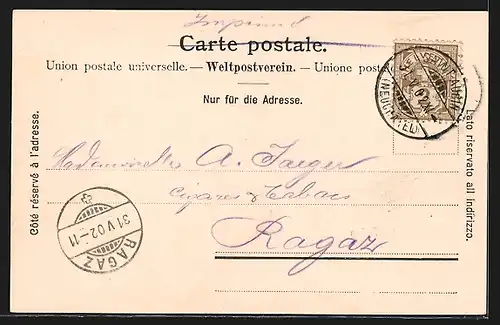 Imprimé
Carte postale.
Union postale universelle. — Weltpostverein. — Unione postale
Nur für die Adresse.
Côté réservé à l'adresse.
Lato riservato all'indirizzo.
(NEUCHATEL)
Mademoiselle A. Jaeger
Cigares & Tabacs
Ragaz
31 V 02 – 11
RAGAZ